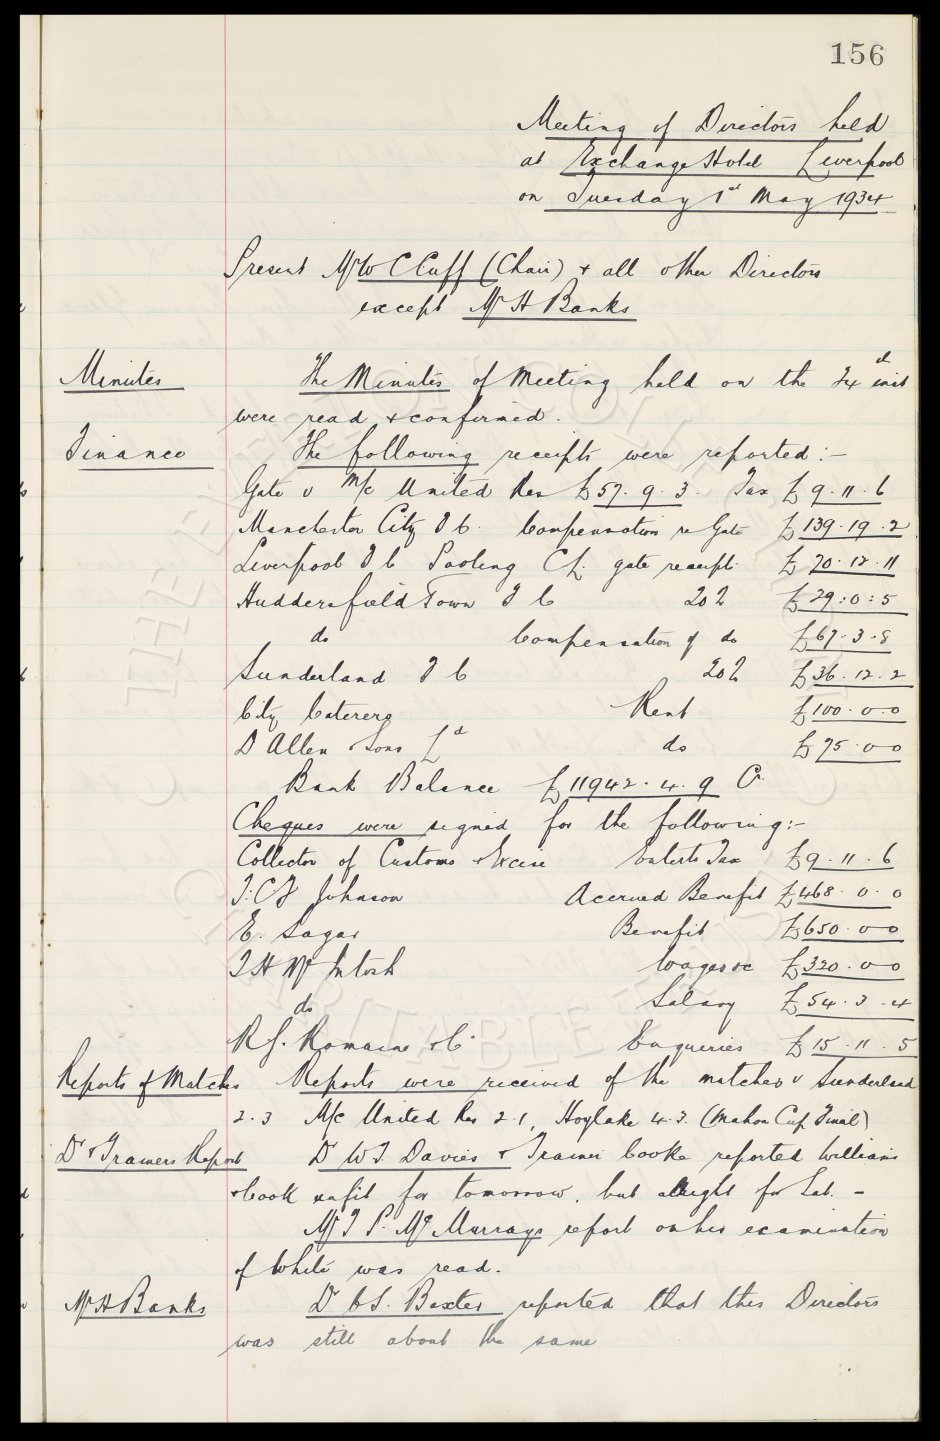 156
Meeting of Directors held
at Exchange Hotel Liverpool
on Tuesday 1st May 1934
Present Mr W C Cuff (Chair) & all other Directors
except Mr H Banks
Minutes The Minutes of Meeting held on the 24th inst
were read & confirmed.
Finance The following receipts were reported :-
Gate v M/c United Res £57. 9. 3. Tax £9. 11. 6
Manchester City F C. Compensation re Gate £139. 19. 2
Liverpool F C Pooling gate receipts £70. 12. 11
Huddersfield Town F C 20% £29 : 0 : 5
do Compensation do £67. 3. 8
Sunderland F C 20% £36. 12. 2
City Caterers Rent £100. 0. 0
D Allen Sons Ld do £75. 0 0
Bank Balance £11942. 4. 9 Cr.
Cheques were signed for the following :-
Collector of Customs & Excise Enterts Tax £9. 11. 6
T.C.F Johnson Accrued Benefit £468. 0. 0
E. Sagar Benefit £650. 0 0
T H McIntosh Wages &c £320. 0 0
do Salary £54. 3. 4
R J. Romaine & Co Enqueries £15. 11. 5
Reports of Matches Reports were received of the matches v Sunderland
2.3 M/c United Res 2.1, Hoylake 4.3. (Mahon Cup Final)
Dr & Trainers Report Dr W J. Davies & Trainer Cooke reported Williams
& Cook unfit for tomorrow, but alright for Sat. -
Mr T P. McMurrays report on his examination
of White was read.
Mr H Banks Dr C S. Baxter reported that this Directors
was still about the same
THE EVERTON COLLECTION CHARITABLE TRUST